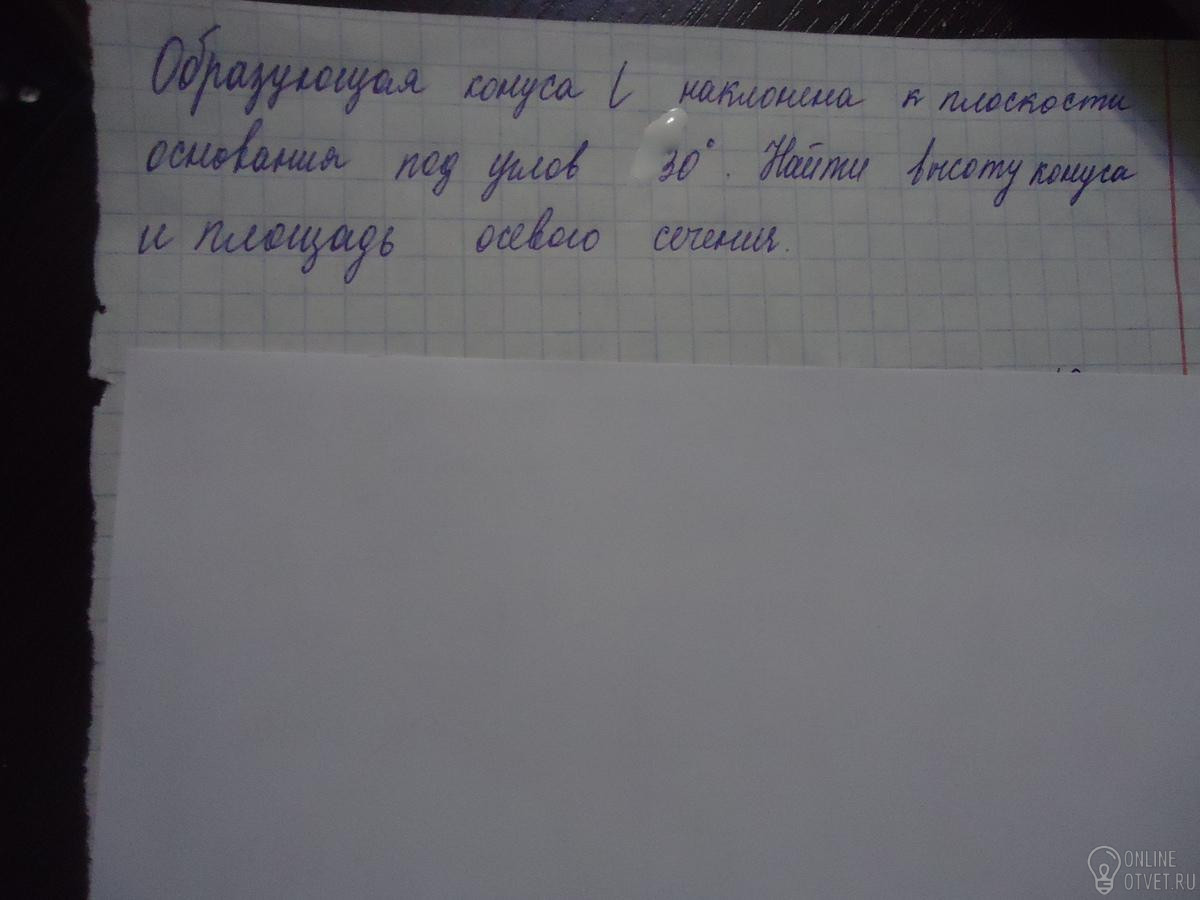 Образующая конуса L наклонена к плоскости
основания под углов 30°. Найти высоту конуса
и площадь осевого сечения.
ONLINE
OTVET.RU